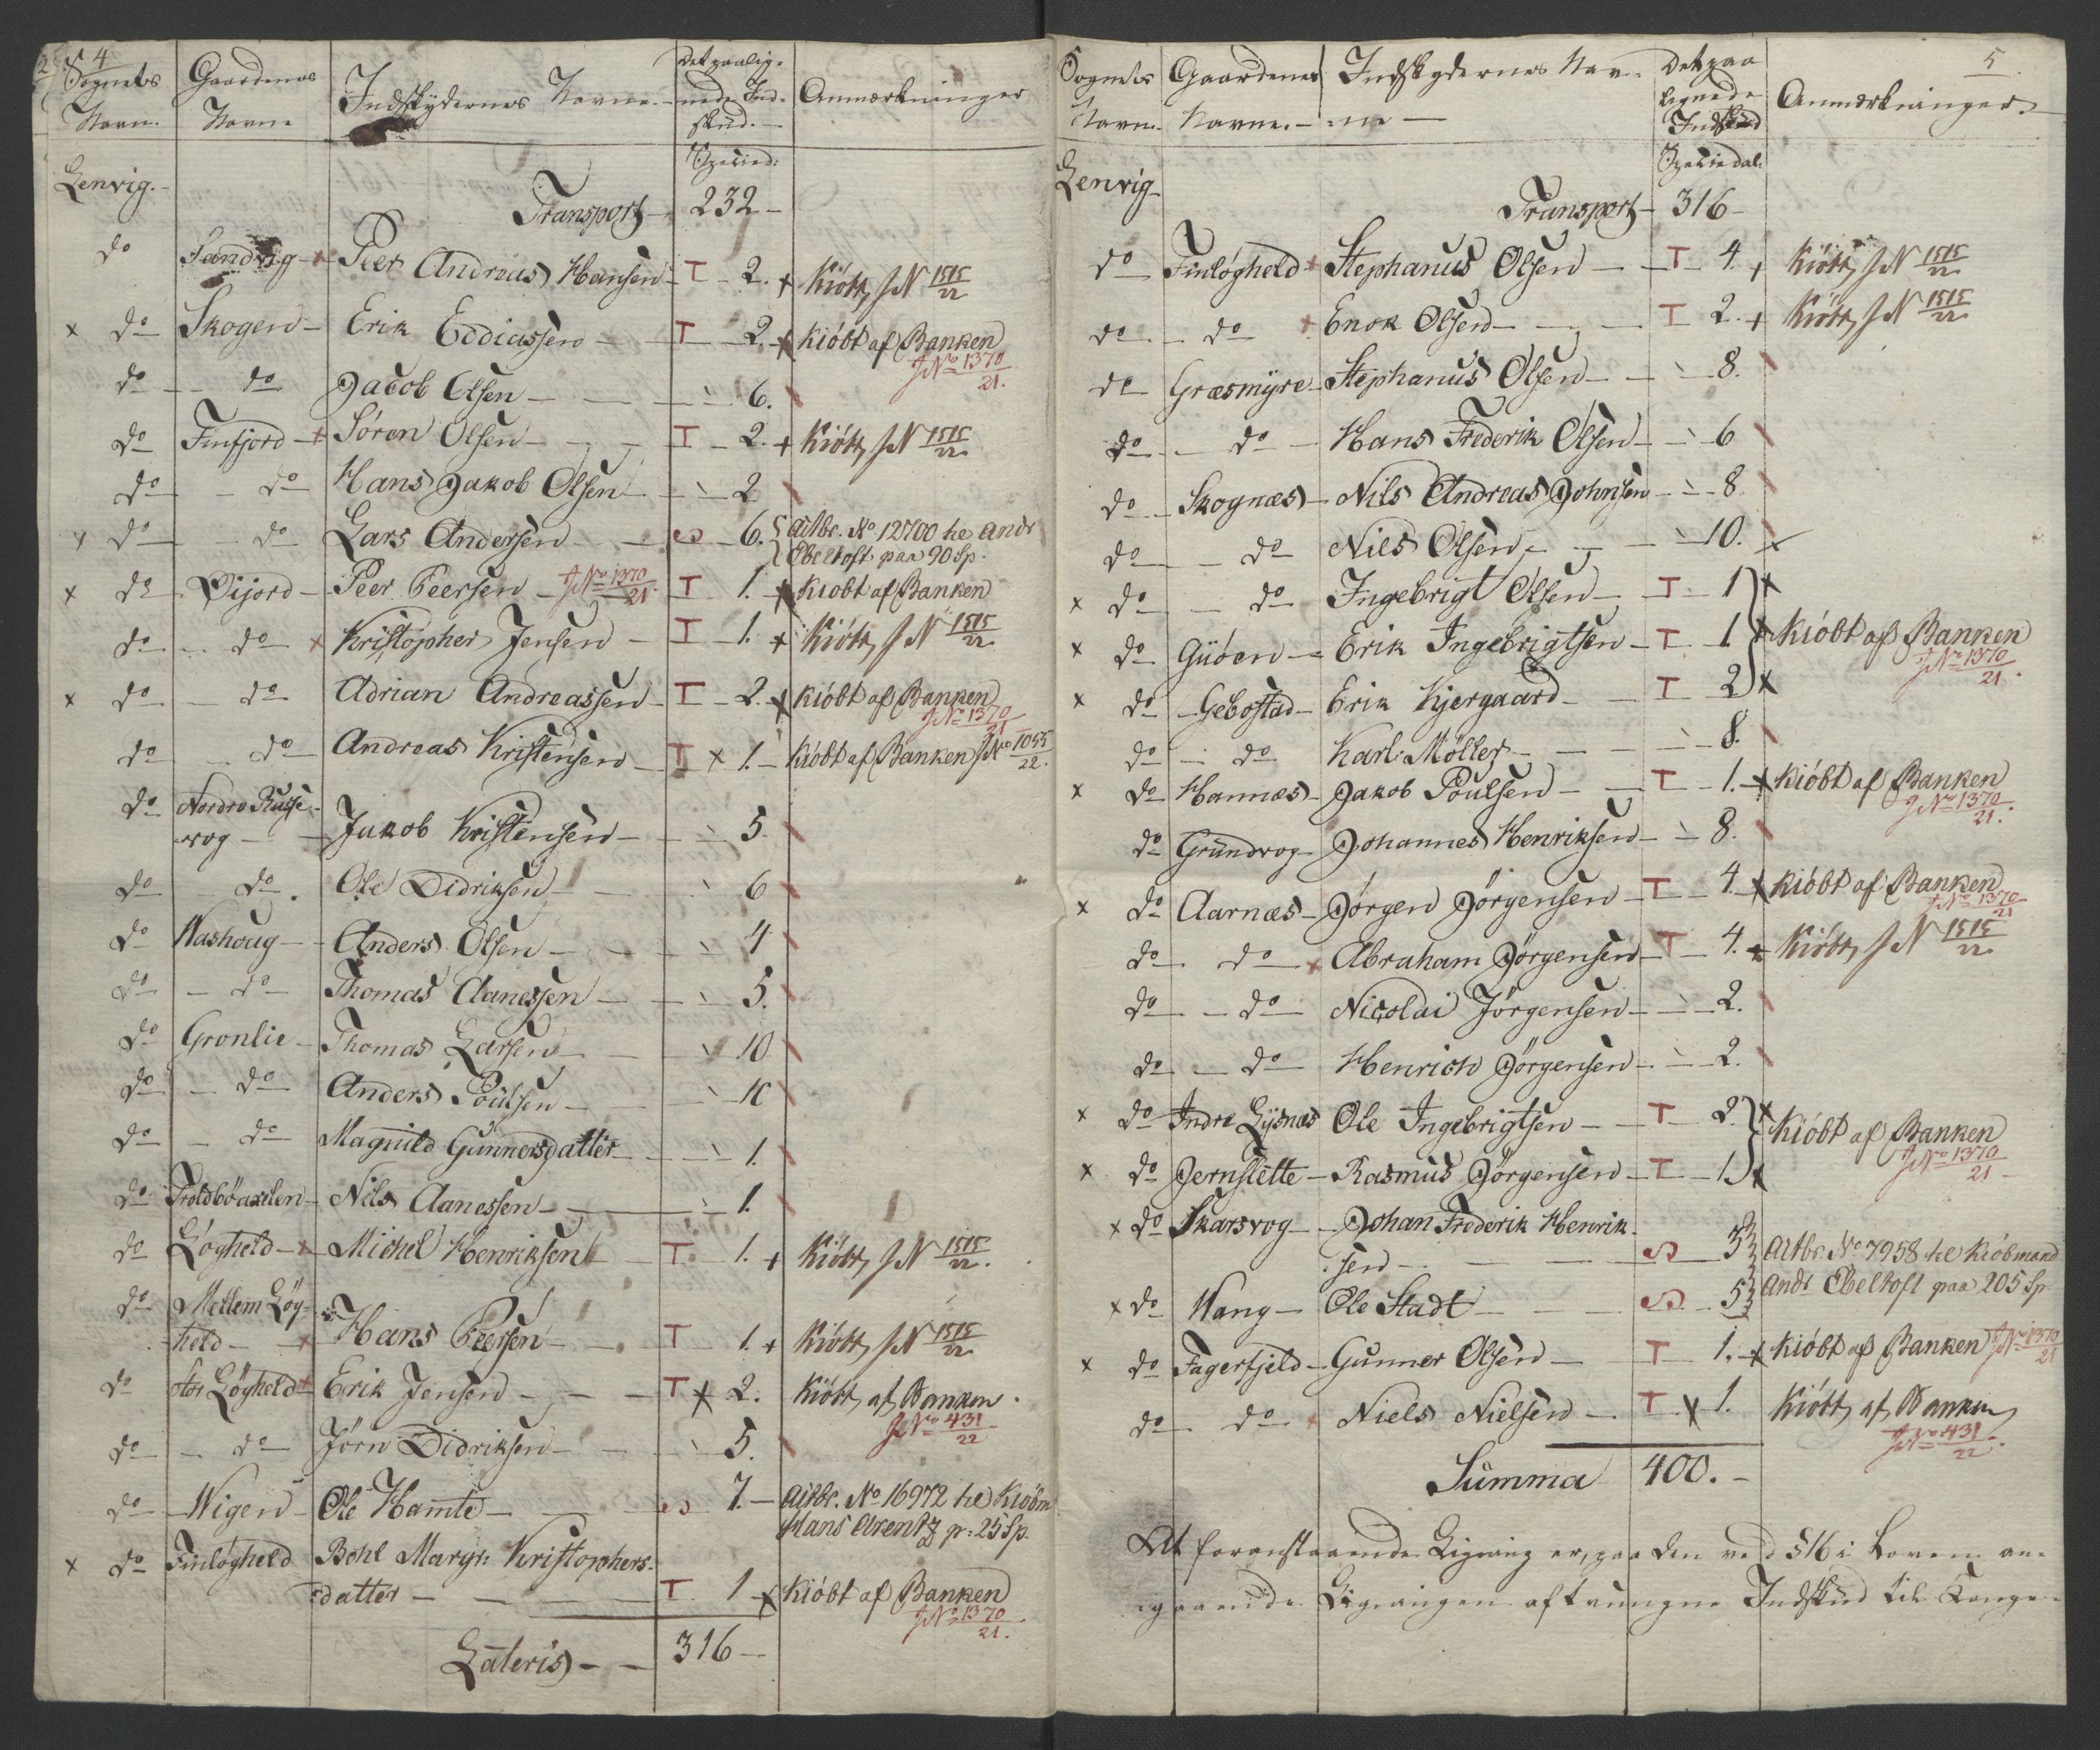 4
Sognets Gaardenes Indskydernes Navne Det paalig-
Navn. Navne nede Ind- Anmærkninger
skud.
Specied:
Lenvig.
Transport 232
do Sandvig + Peer Andreas Hansen T 2. + Kiöbt J N 1515/22
x do Skogen Erik Eddiassen T 2. + Kióbt af Banken
JNo 1370/21.
do do Jacob Olsen 6.
do Finfjord + Sóren Olsen T 2. + Kióbt J N 1515/22
do do Hans Jakob Olsen 2
x do do Lars Andersen S 6. Aitbr. No 12700 he Andr
Ebeltoft paa 90 Sp.
x do Öijord Peer Peersen JNo 1370/21 T 1. + Kiobt af Banken
do do + Kristopher Jensen T 1. + Kióbt J N 1515/22
x do do Adrian Andreassen T 2. + Kióbt af Banken
JNo 1370/21
do do Andreas Kristensen T x 1. Kióbt af Banken JNo 1055/22.
do Nordre Russe-
vog Jakob Kristensen 5.
do do. Ole Didriksen 6
do Washoug Anders Olsen 4
do do Thomas Aanessen 5.
do Gronlie Thomas Larsen 10
do do Anders Poulsen 10
do do Magnild Gunnersdatter 1.
do Troldböaxelen Nils Aanessen 1.
do Lógheld + Michel Henriksen T 1. + Kióbt J N 1515/22.
do Mellem Lög-
held + Hans Peersen T 1. + Kióbt J N 1515/22
do Stor Lögheld + Erik Jensen T x 2. Kióbt af Banken.
JNo 431/22
do do Jörn Didriksen 5.
do Wigen Ole Hamte S 7. Aitbr. No 16972 he Kiöbm
Hans Arentz p: 25 Sp.
x do Finlógheld Bohl Margr: Kristophers-
datter T 1 x Kióbt af Banken
JNo 1370/21.
Lateris 316
5
Sognets Gaardenes Indskydernes Nav- Det paa
lignede Anmærkninger
Navn. Navne. ne Indskud
Speciedal.
Lenvig
Transport 316
do Finlógheld + Stephanus Olsen T 4. + Kióbt J N 1515/22
do do + Enok Olsen T 2. + Kióbt J N 1515/22
do Græsmyre Stephanus Olsen 8.
do do Hans Frederik Olsen 6
do Skognæs Nils Andreas Johnsen 8.
do do Niels Olsen 10. x
x do do Ingebrigt Olsen T 1 x
x do Gÿóen Erik Ingebrigtsen T 1 x Kióbt af Banken
JNo 1370/21.
x do Gebostad Erik Kjergaard T 2 x
do do Karl Möller 8.
x do Hannæs Jakob Poulsen T 1. x Kióbt af Banken
JNo 1370/21.
do Grundvog Johannes Henriksen 8.
x do Aarnæs Jórgen Jörgensen T 4. x Kióbt af Banken
JNo 1370/21
do do + Abraham Jörgensen T 4. + Kióbt J N 1515/22
do do Nicolai Jörgensen 2.
do do Henrich Jörgensen 2.
x do Indre Lÿsnæs Ole Ingebrigtsen T 2. x
Kióbt af Banken
JNo 1370/21
x do Jernslette Rasmus Jörgensen T 1. x
x do Skarsvog Johan Frederik Henrik-
sen S 5 Aitbr. No 7958 he Kióbmand
x do Wang Ole Stadt S 5 Andr Ebeltoft paa 205 Sp
x do Fagerfjeld Gunner Olsen T 1. x Kióbt af Banken JNo 1370/21
do do + Niels Nielsen T x 1. Kióbt af Banken
JNo 431/22.
Summa 400.
At foranstaaende Ligning er, paa den ved § 16 i Loven an-
gaaende Ligningen af tvungne Indskud til Konge-